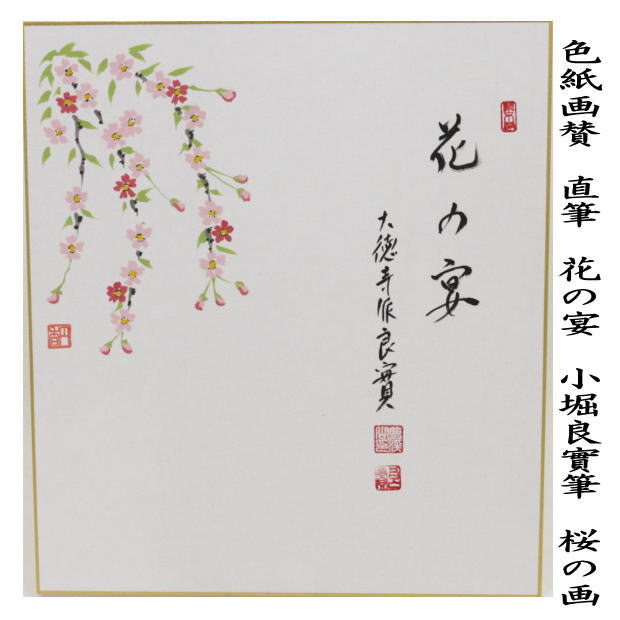 色紙画賛 直筆 花の宴 小堀良實筆 桜の画
花の宴
大徳寺派良實